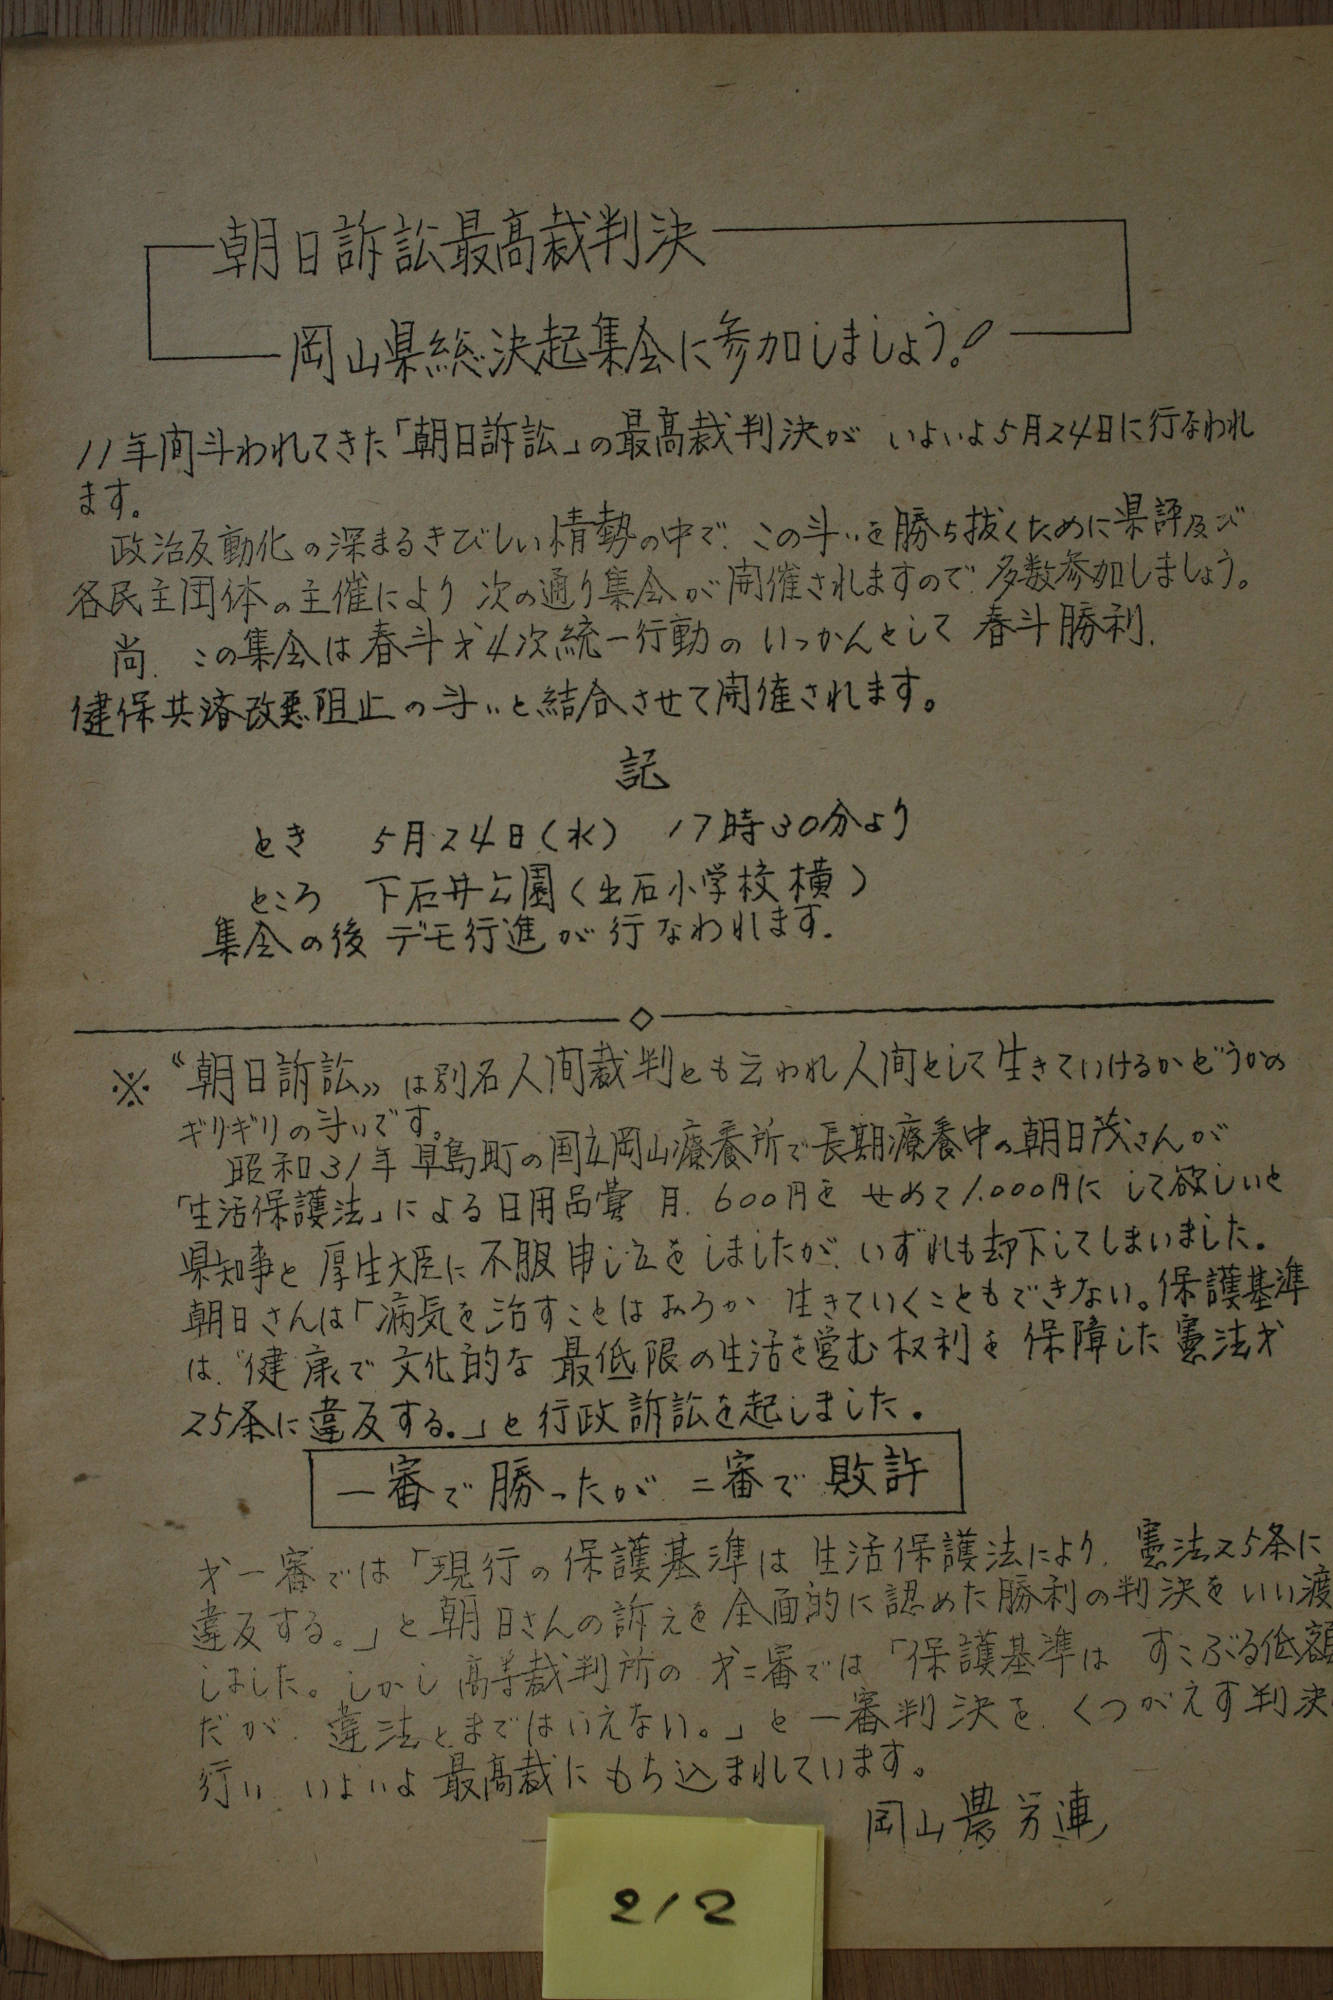 朝日訴訟最高裁判決
岡山県総決起集会に参加しましょう!
11年間斗われてきた「朝日訴訟」の最高裁判決が いよいよ5月24日に行なわれ
ます。
政治反動化の深まるきびしい情勢の中で、この斗いを勝ち抜くために県評及び
各民主団体の主催により 次の通り集会が開催されますので、多数参加しましょう。
尚、この集会は春斗才4次統一行動の いっかんとして 春斗勝利、
健保共済改悪阻止の斗いと結合させて開催されます。
記
とき 5月24日(水) 17時30分より
ところ 下石井公園(出石小学校横)
集会の後 デモ行進が行なわれます.
※〝朝日訴訟〟は別名人間裁判とも云われ人間として生きていけるかどうかの
ギリギリの斗いです。
昭和31年 早島町の国立岡山療養所で長期療養中の朝日茂さんが
「生活保護法」による日用品費 月、600円を せめて1.000円に して欲しいと
県知事と厚生大臣に不服申し立をしましたが、いずれも却下してしまいました。
朝日さんは「病気を治すことはおろか 生きていくこともできない。保護基準
は、健康で文化的な最低限の生活を営む权利を保障した憲法才
25条に違反する。」と行政訴訟を起しました。
一審で勝ったが 二審で敗訴
才一審では「現行の保護基準は生活保護法により、憲法25条に
違反する。」と朝日さんの訴えを全面的に認めた勝利の判決をいい渡
しました。しかし高等裁判所の才二審では「保護基準は すこぶる低額
だが、違法とまではいえない。」と一審判決を、くつがえす判決
行い いよいよ最高裁にもち込まれています。
岡山農労連
212